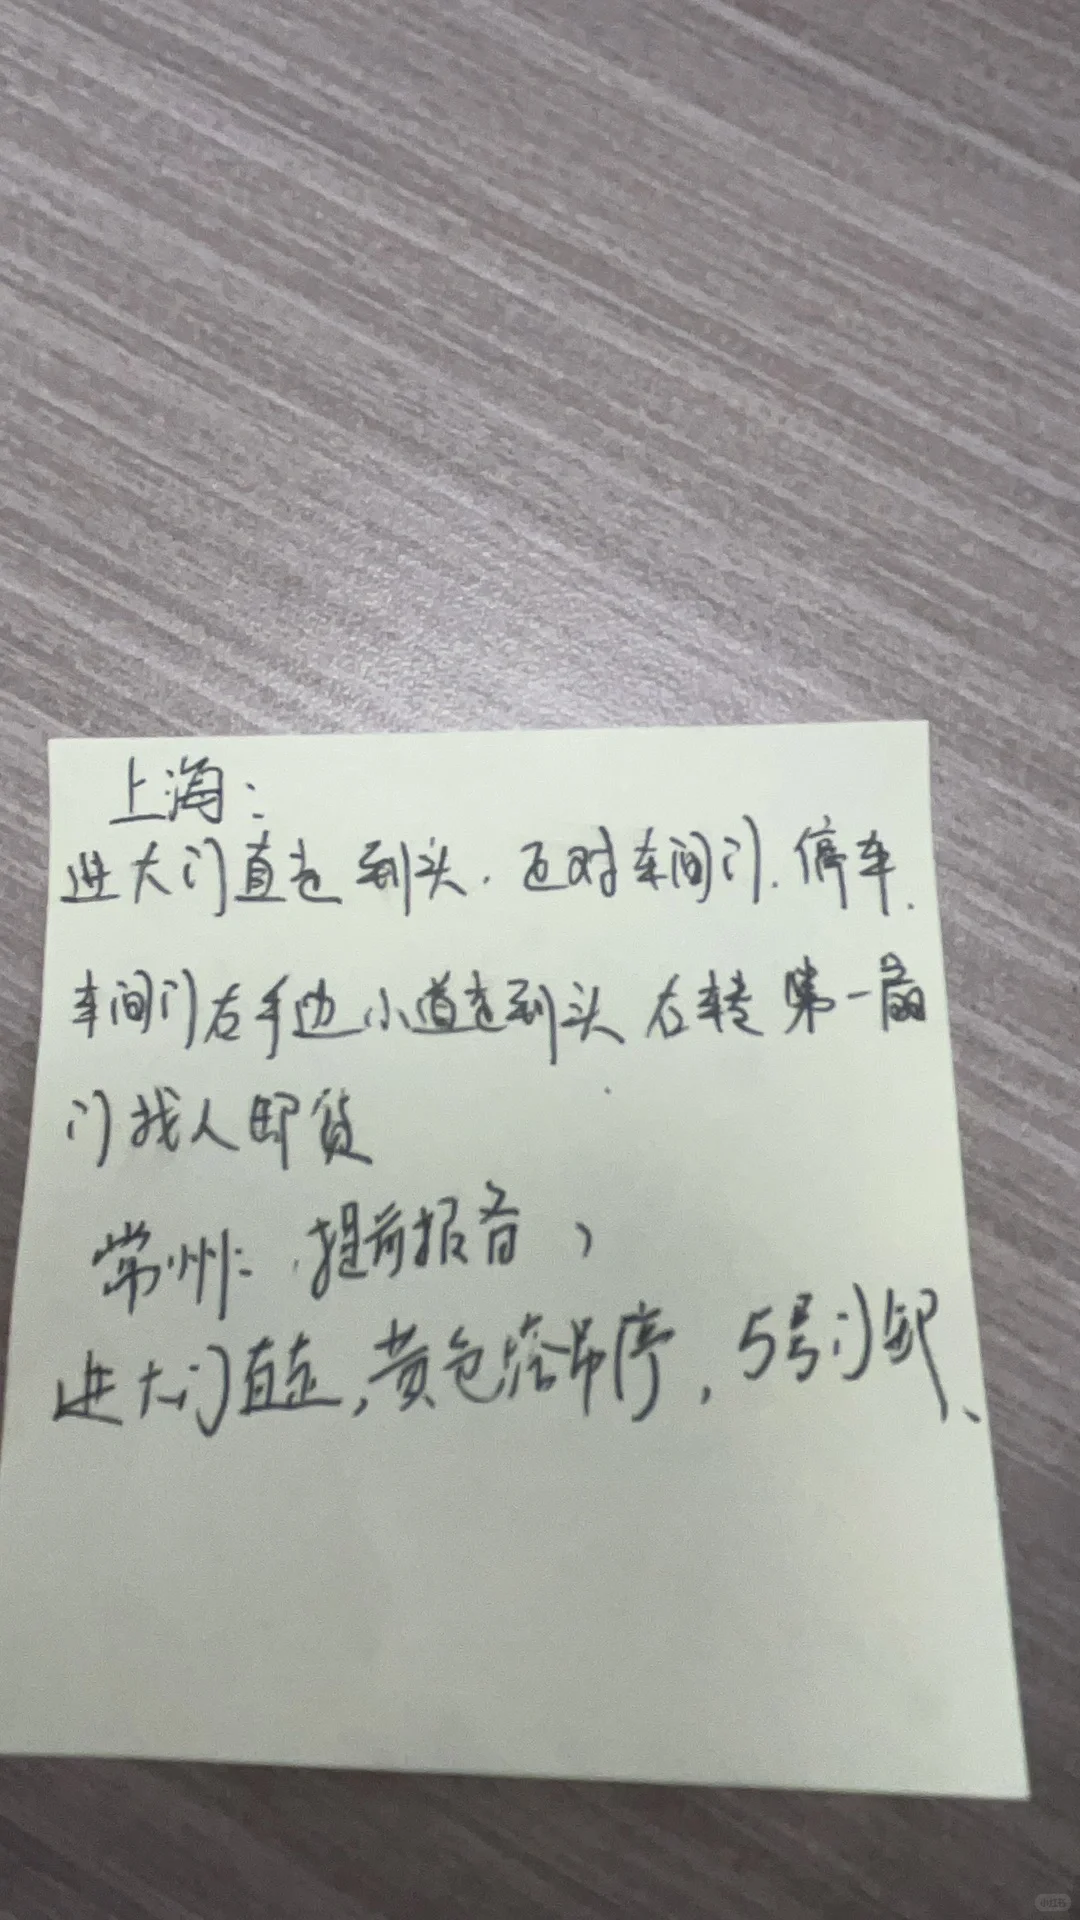 上海：
进大门直走到头.正对车间门.停车.
车间门右手边小道走到头右转第一扇
门找人卸货
常州：提前报备，
进大门直走，黄色塔吊停，5号门卸、
小红书